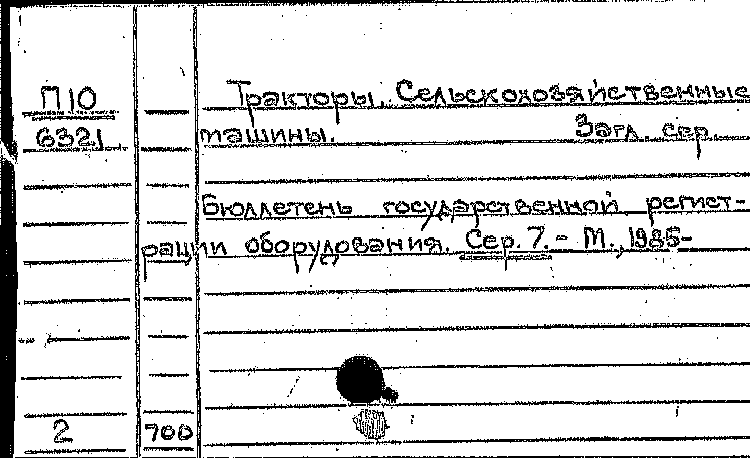 П10
Тракторы. Сельскохозяйственные
6321
машины. Загл. сер.
Бюллетень государственной регист-
рации оборудования. Сер. 7. - М., 1985-
2 700